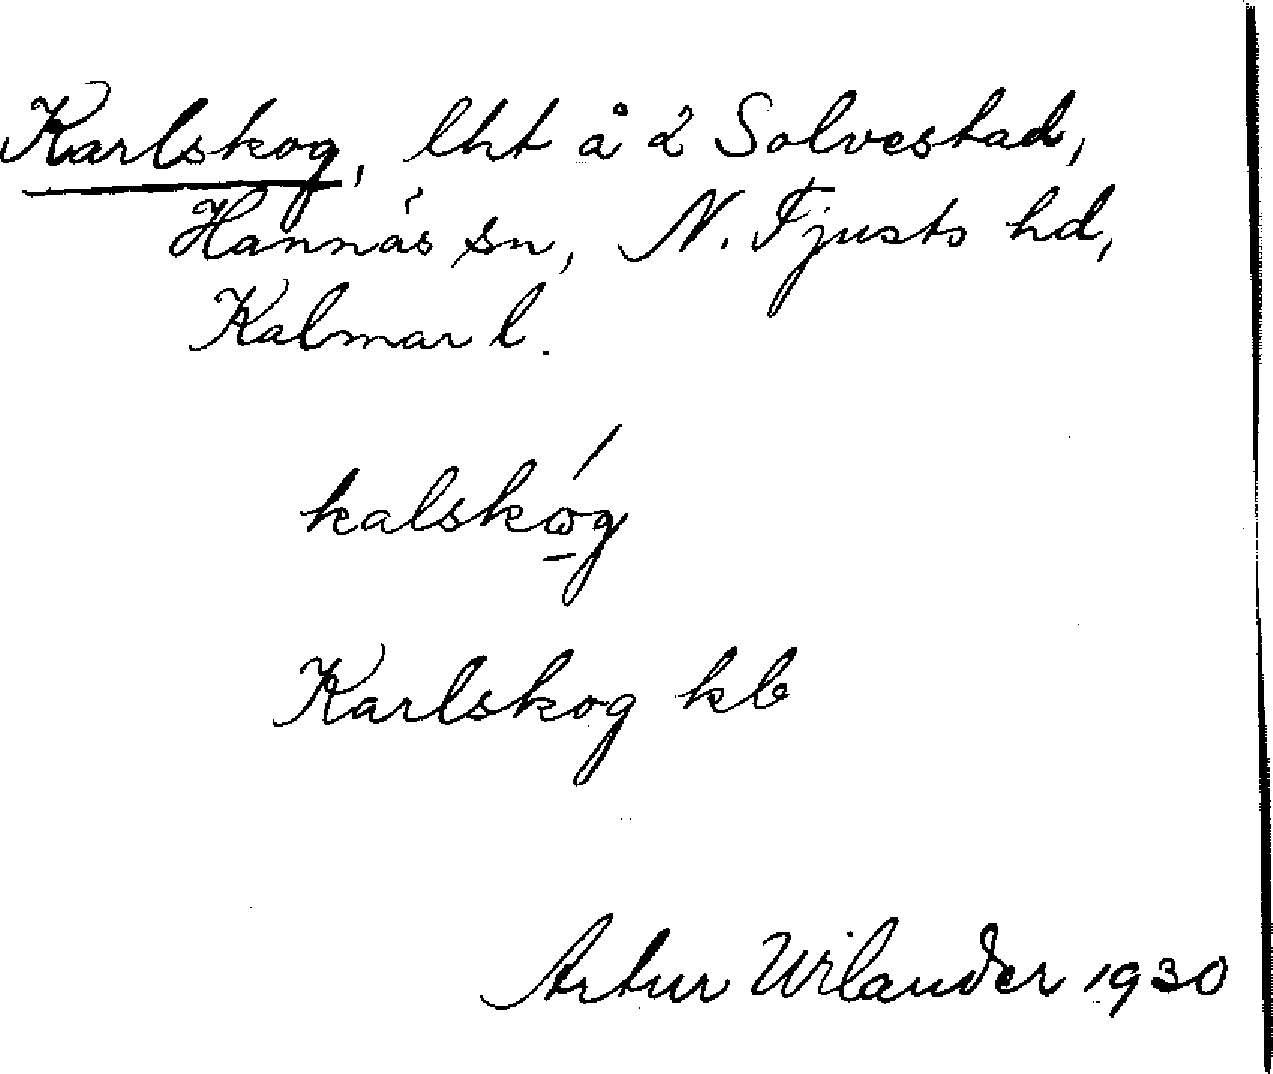 Karlskog, lht å 2 Solvestad,
Hannäs sn, N. Tjusts hd,
Kalmar l.
kalskóg
Karlskog kb
Artur Wilander 1930